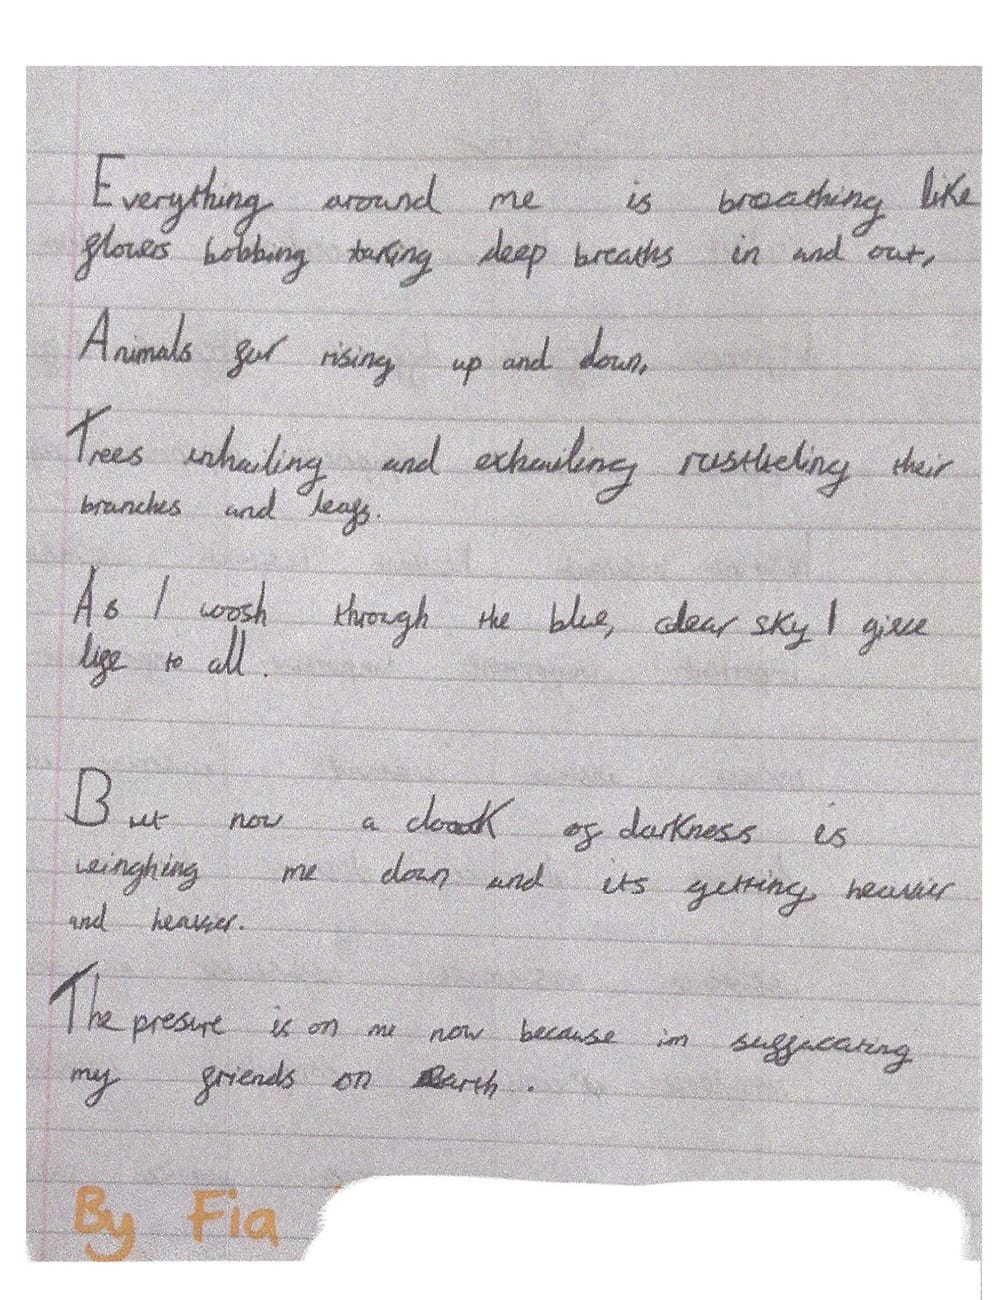 Everything around me is breathing like
flowers bobbing taking deep breaths in and out,
Animals fur rising up and down,
Trees inhailing and exhailing rustleling their
branches and leafs.
As I woosh through the blue, clear sky I give
life to all.
But now a cloak of darkness is
weinghing me down and its getting heavier
and heavier.
The presure is on me now because im suffucating
my friends on Earth.
By Fia